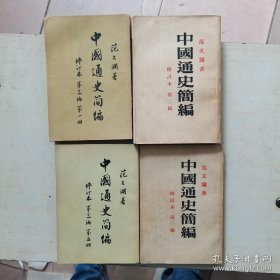 范文澜著
中國通史简编
修订本 第三编 第一册
范文瀾著
中國通史簡編
修訂本 第一編
范文澜著
中國通史简编
修订本 第三编 第二册
范文瀾著
中國通史簡編
修訂本 第二編